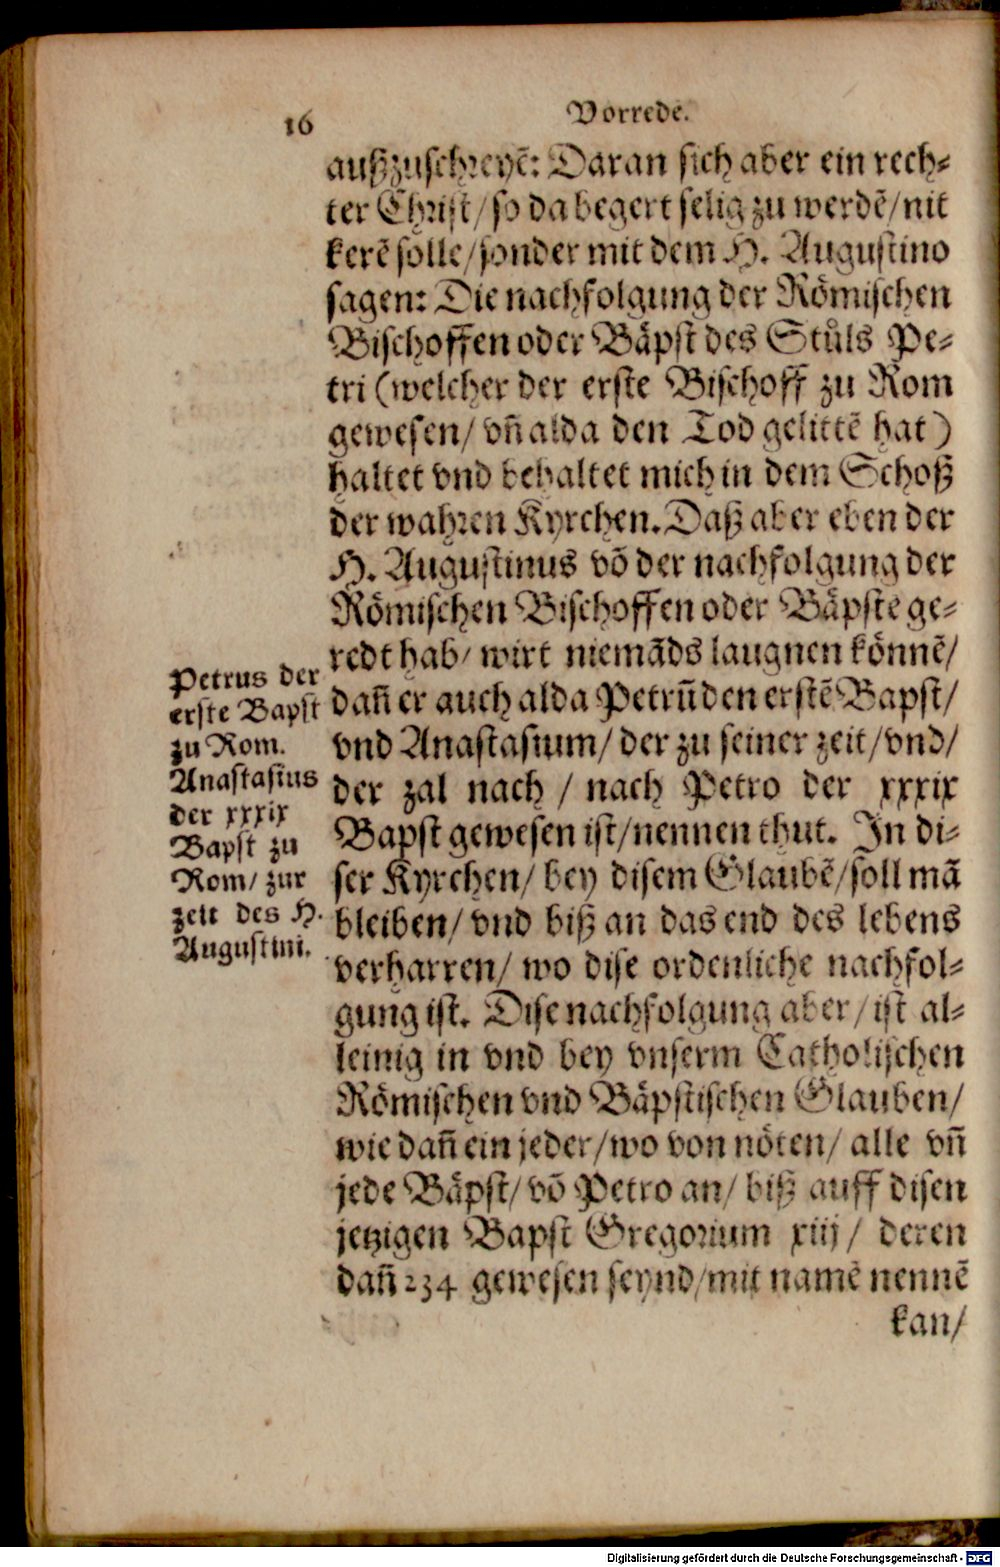 16
Vorrede.
außzuschreyẽ: Daran sich aber ein rech⸗
ter Christ/so da begert selig zu werdẽ/nit
kerẽ solle/sonder mit dem H. Augustino
sagen: Die nachfolgung der Römischen
Bischoffen oder Bäpst des Stůls Pe⸗
tri (welcher der erste Bischoff zu Rom
gewesen/ vñ alda den Tod gelittẽ hat)
haltet vnd behaltet mich in dem Schoß
der wahren Kyrchen. Daß aber eben der
H. Augustinus võ der nachfolgung der
Römischen Bischoffen oder Bäpste ge⸗
redt hab/ wirt niemãds laugnen könnẽ/
dañ er auch alda Petrũ den erstẽ Bapst/
vnd Anastasium/ der zu seiner zeit/vnd/
der zal nach / nach Petro der xxxix
Bapst gewesen ist/nennen thut. In di⸗
ser Kyrchen/ bey disem Glaubẽ/soll mã
bleiben/ vnd biß an das end des lebens
verharren/ wo dise ordenliche nachfol⸗
gung ist. Dise nachfolgung aber/ist al⸗
leinig in vnd bey vnserm Catholischen
Römischen vnd Bäpstischen Glauben/
wie dañ ein jeder/wo von nöten/ alle vñ
jede Bäpst/ võ Petro an/ biß auff disen
jetzigen Bapst Gregorium xiij/ deren
dañ 234 gewesen seynd/mit namẽ nennẽ
kan/
Petrus der
erste Bapst
zu Rom.
Anastasius
der xxxix
Bapst zu
Rom/ zur
zeit des H.
Augustini.
Digitalisierung gefördert durch die Deutsche Forschungsgemeinschaft - DFG